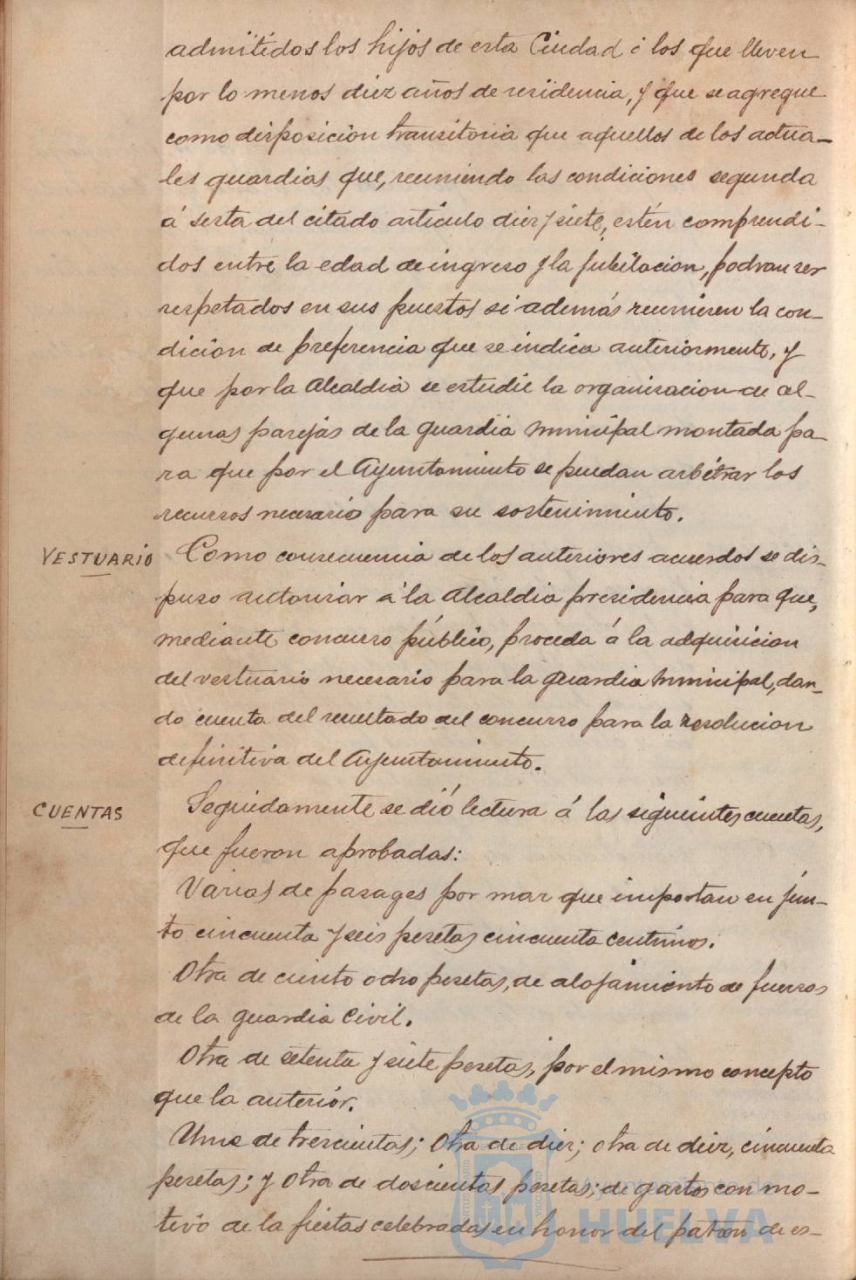 admitidos los hijos de esta Ciudad ó los que lleven
por lo menos diez años de residencia, y que se agregue
como disposicion transitoria que aquellos de los actua-
les guardias que, reuniendo las condiciones segunda
á sesta del citado artículo diez y siete, estén comprendi-
dos entre la edad de ingreso y la jubilacion, podran ser
respetados en sus puestos si además reunieren la con-
dicion de preferencia que se indica anteriormente, y
que por la Alcaldia se estudie la organizacion de al-
gunas parejas de la guardia municipal montada pa-
ra que por el Ayuntamiento se puedan arbitrar los
recursos necesario para su sostenimiento.
VESTUARIO Como consecuencia de los anteriores acuerdos se dis-
puso autorizar á la Alcaldia presidencia para que,
mediante concurso público, proceda á la adquisicion
del vestuario necesario para la guardia municipal, dan-
do cuenta del resultado del concurso para la resolucion
definitiva del Ayuntamiento.
CUENTAS Seguidamente se dió lectura á las siguientes cuentas,
que fueron aprobadas:
Varias de pasages por mar que importan en jun-
to cincuenta y seis pesetas cincuenta centimos.
Otra de ciento ocho pesetas, de alojamiento de fuerzas
de la guardia Civil.
Otra de setenta y siete pesetas, por el mismo concepto
que la anterior.
Una de trescientas; otra de diez; otra de diez, cincuenta
pesetas; y otra de doscientas pesetas; de gastos con mo-
tivo de la fiestas celebradas en honor del patron de es-
Ayuntamiento de
HUELVA